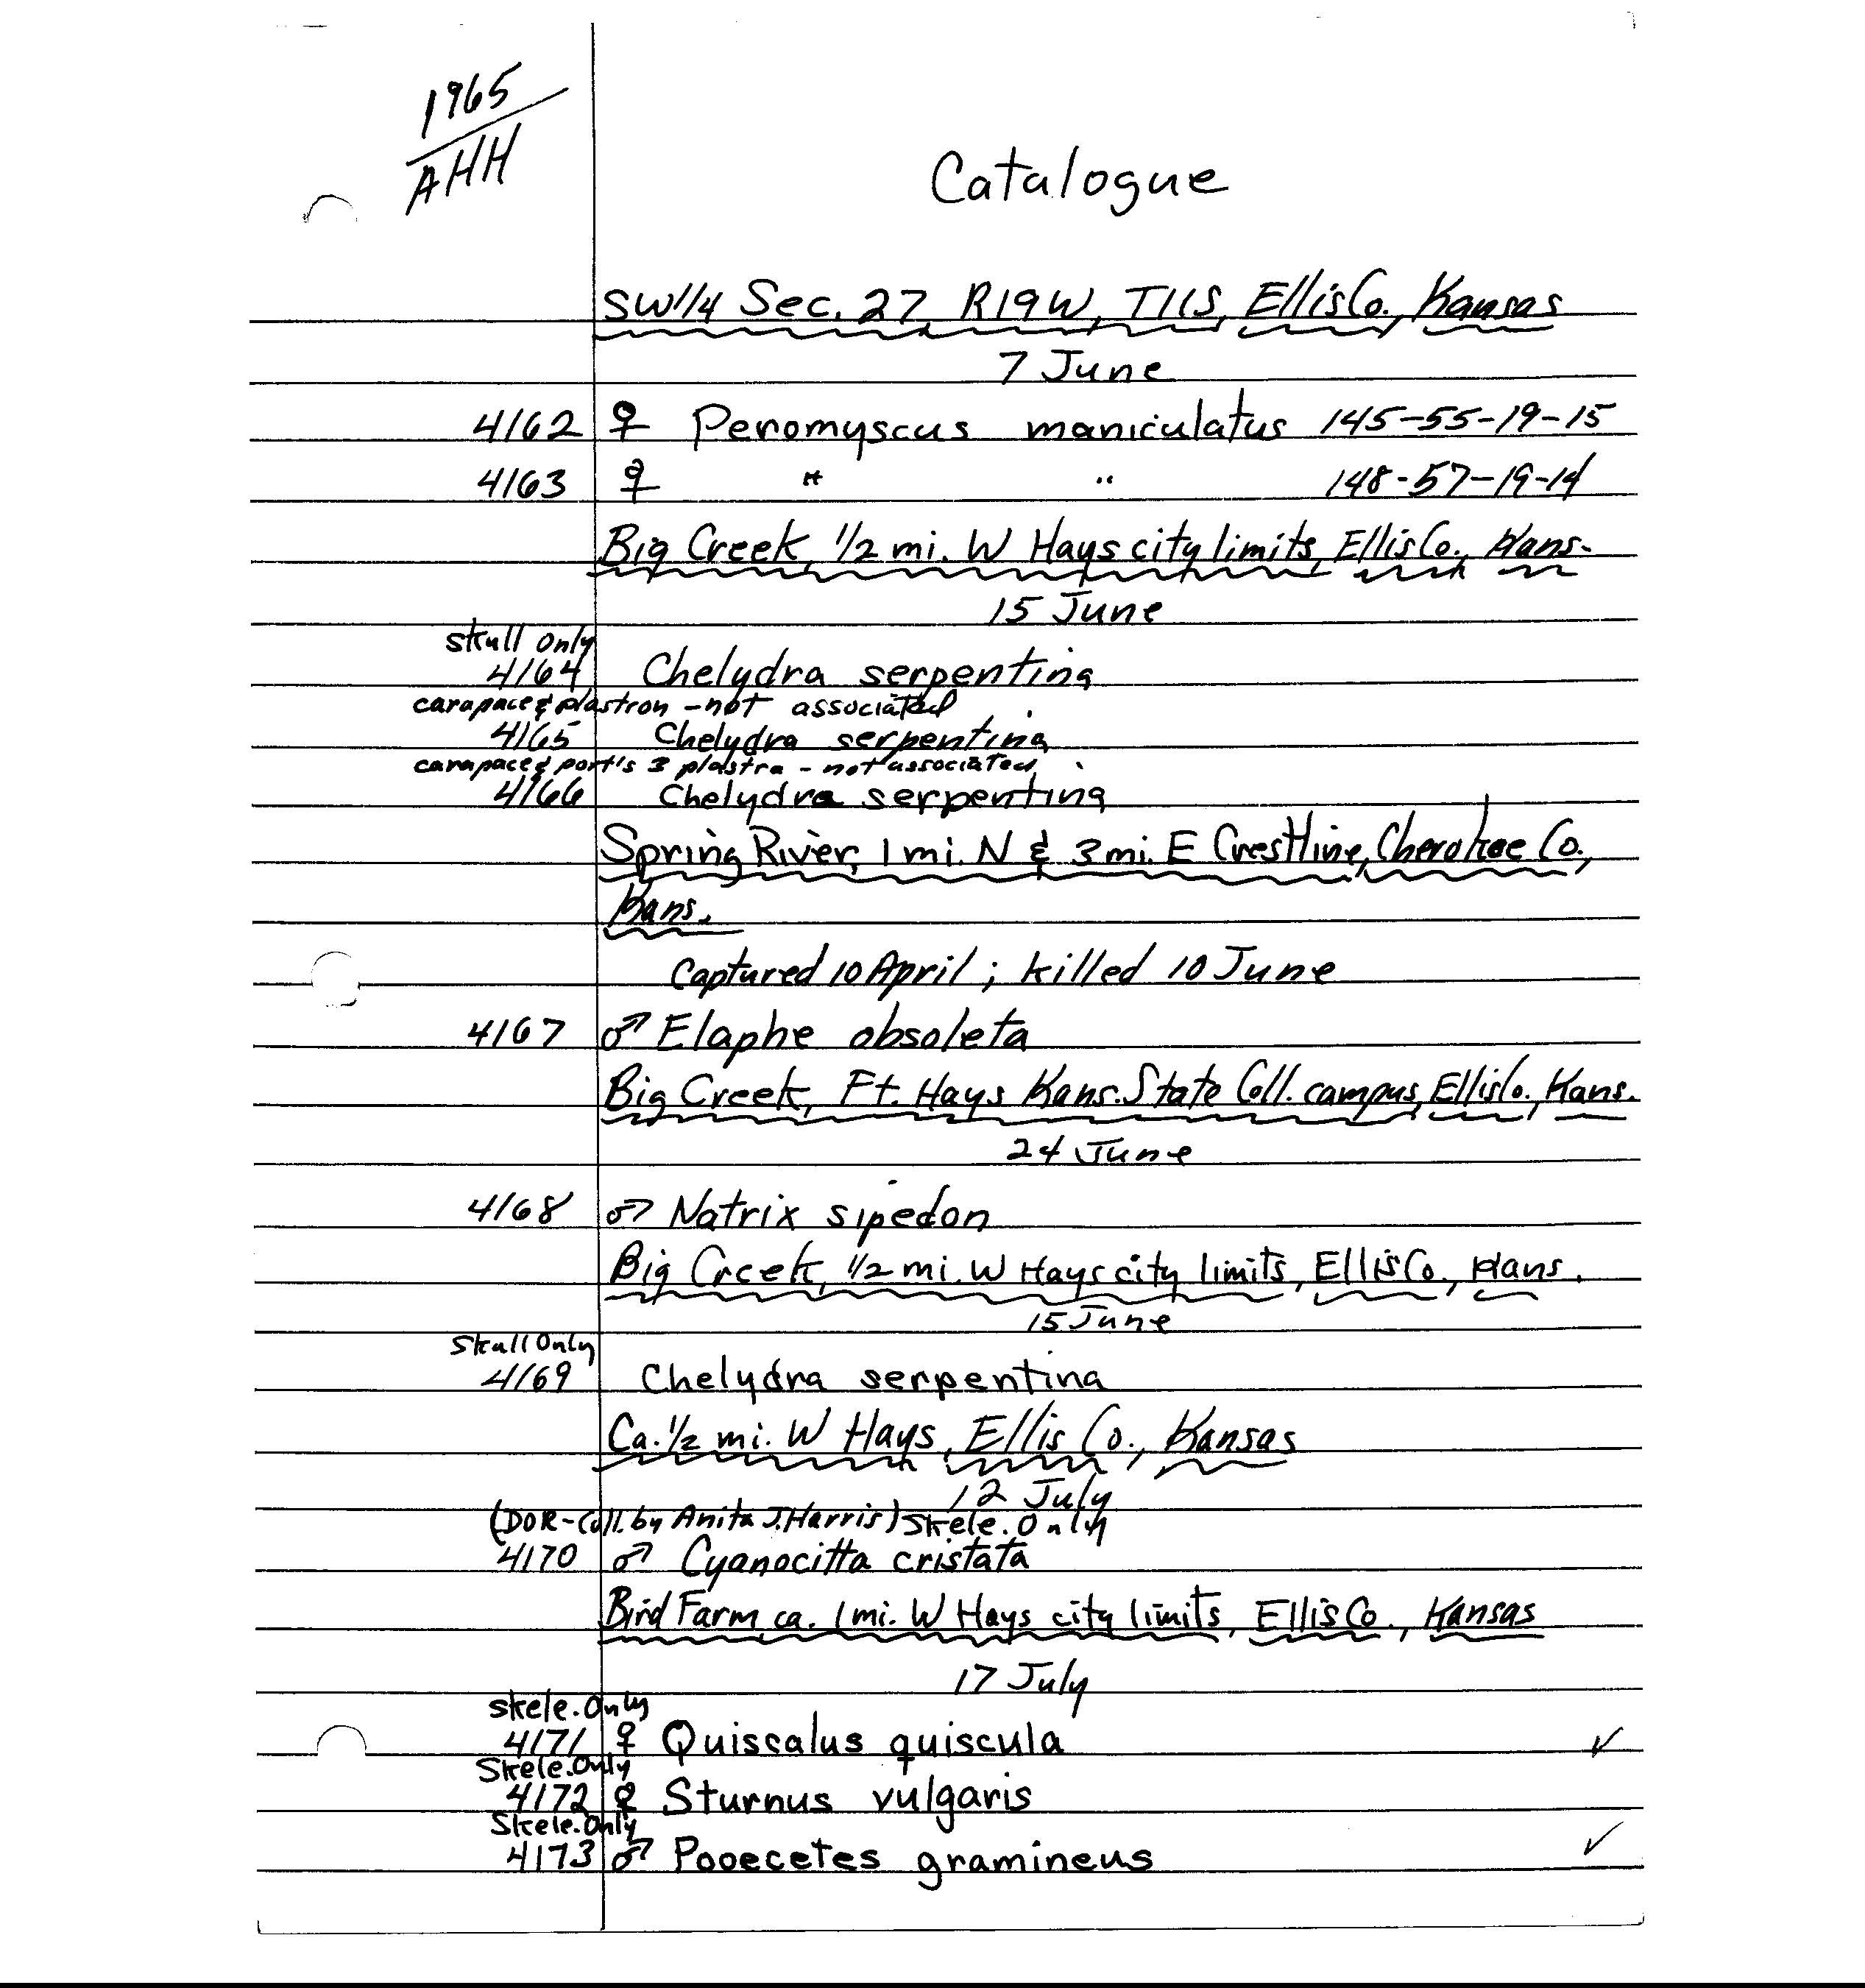 1965
AHH
Catalogue
SW1/4 Sec. 27, R19W, T11S, Ellis Co., Kansas
7 June
4162 ♀ Peromyscus maniculatus 145-55-19-15
4163 ♀ " " 148-57-19-14
Big Creek, 1/2 mi. W Hays city limits, Ellis Co., Kans.
15 June
Skull Only
4164 Chelydra serpentina
carapace & plastron - not associated
4165 Chelydra serpentina
carapace & port's 3 plastra - not associated
4166 Chelydra serpentina
Spring River, 1 mi. N & 3 mi. E Crestline, Cherokee Co.,
Kans.
Captured 10 April; killed 10 June
4167 ♂ Elaphe obsoleta
Big Creek, Ft. Hays Kans. State Coll. campus, Ellis Co., Kans.
24 June
4168 ♂ Natrix sipedon
Big Creek, 1/2 mi. W Hays city limits, Ellis Co., Kans.
15 June
Skull Only
4169 Chelydra serpentina
Ca. 1/2 mi. W Hays, Ellis Co., Kansas
12 July
(DOR-Coll. by Anita J. Harris) Skele. Only
4170 ♂ Cyanocitta cristata
Bird Farm, ca. 1 mi. W Hays city limits, Ellis Co., Kansas
17 July
Skele. Only
4171 ♀ Quiscalus quiscula ✓
Skele. Only
4172 ♀ Sturnus vulgaris
Skele. Only
4173 ♂ Pooecetes gramineus ✓